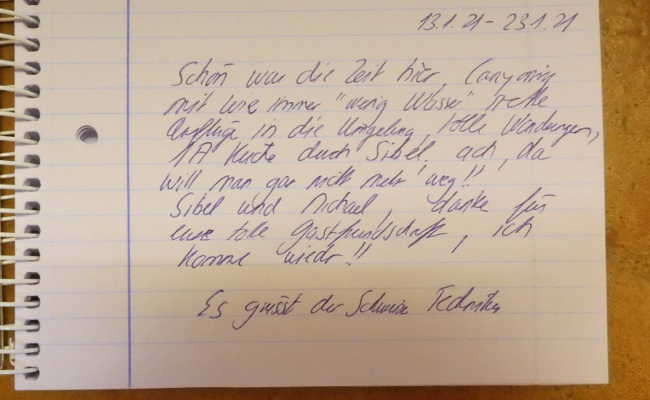 13.1.21 - 23.1.21
Schön war die Zeit hier, Canyoning
mit wie immer "wenig Wasser" nette
Ausflüge in die Umgebung, tolle Wanderungen,
1A Küche durch Sibel, ach, da
will man gar nicht mehr weg!!
Sibel und Michael, danke für
eure tolle Gastfreundschaft, ich
komme wieder!!
Es grüsst der Schweizer Techniker